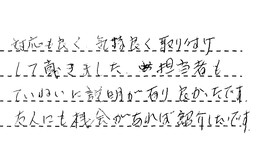 対応も良く 気持良く取り付け
して頂きました 担当者も
ていねいに説明が有り 良かったです。
友人にも機会があれば紹介したいです